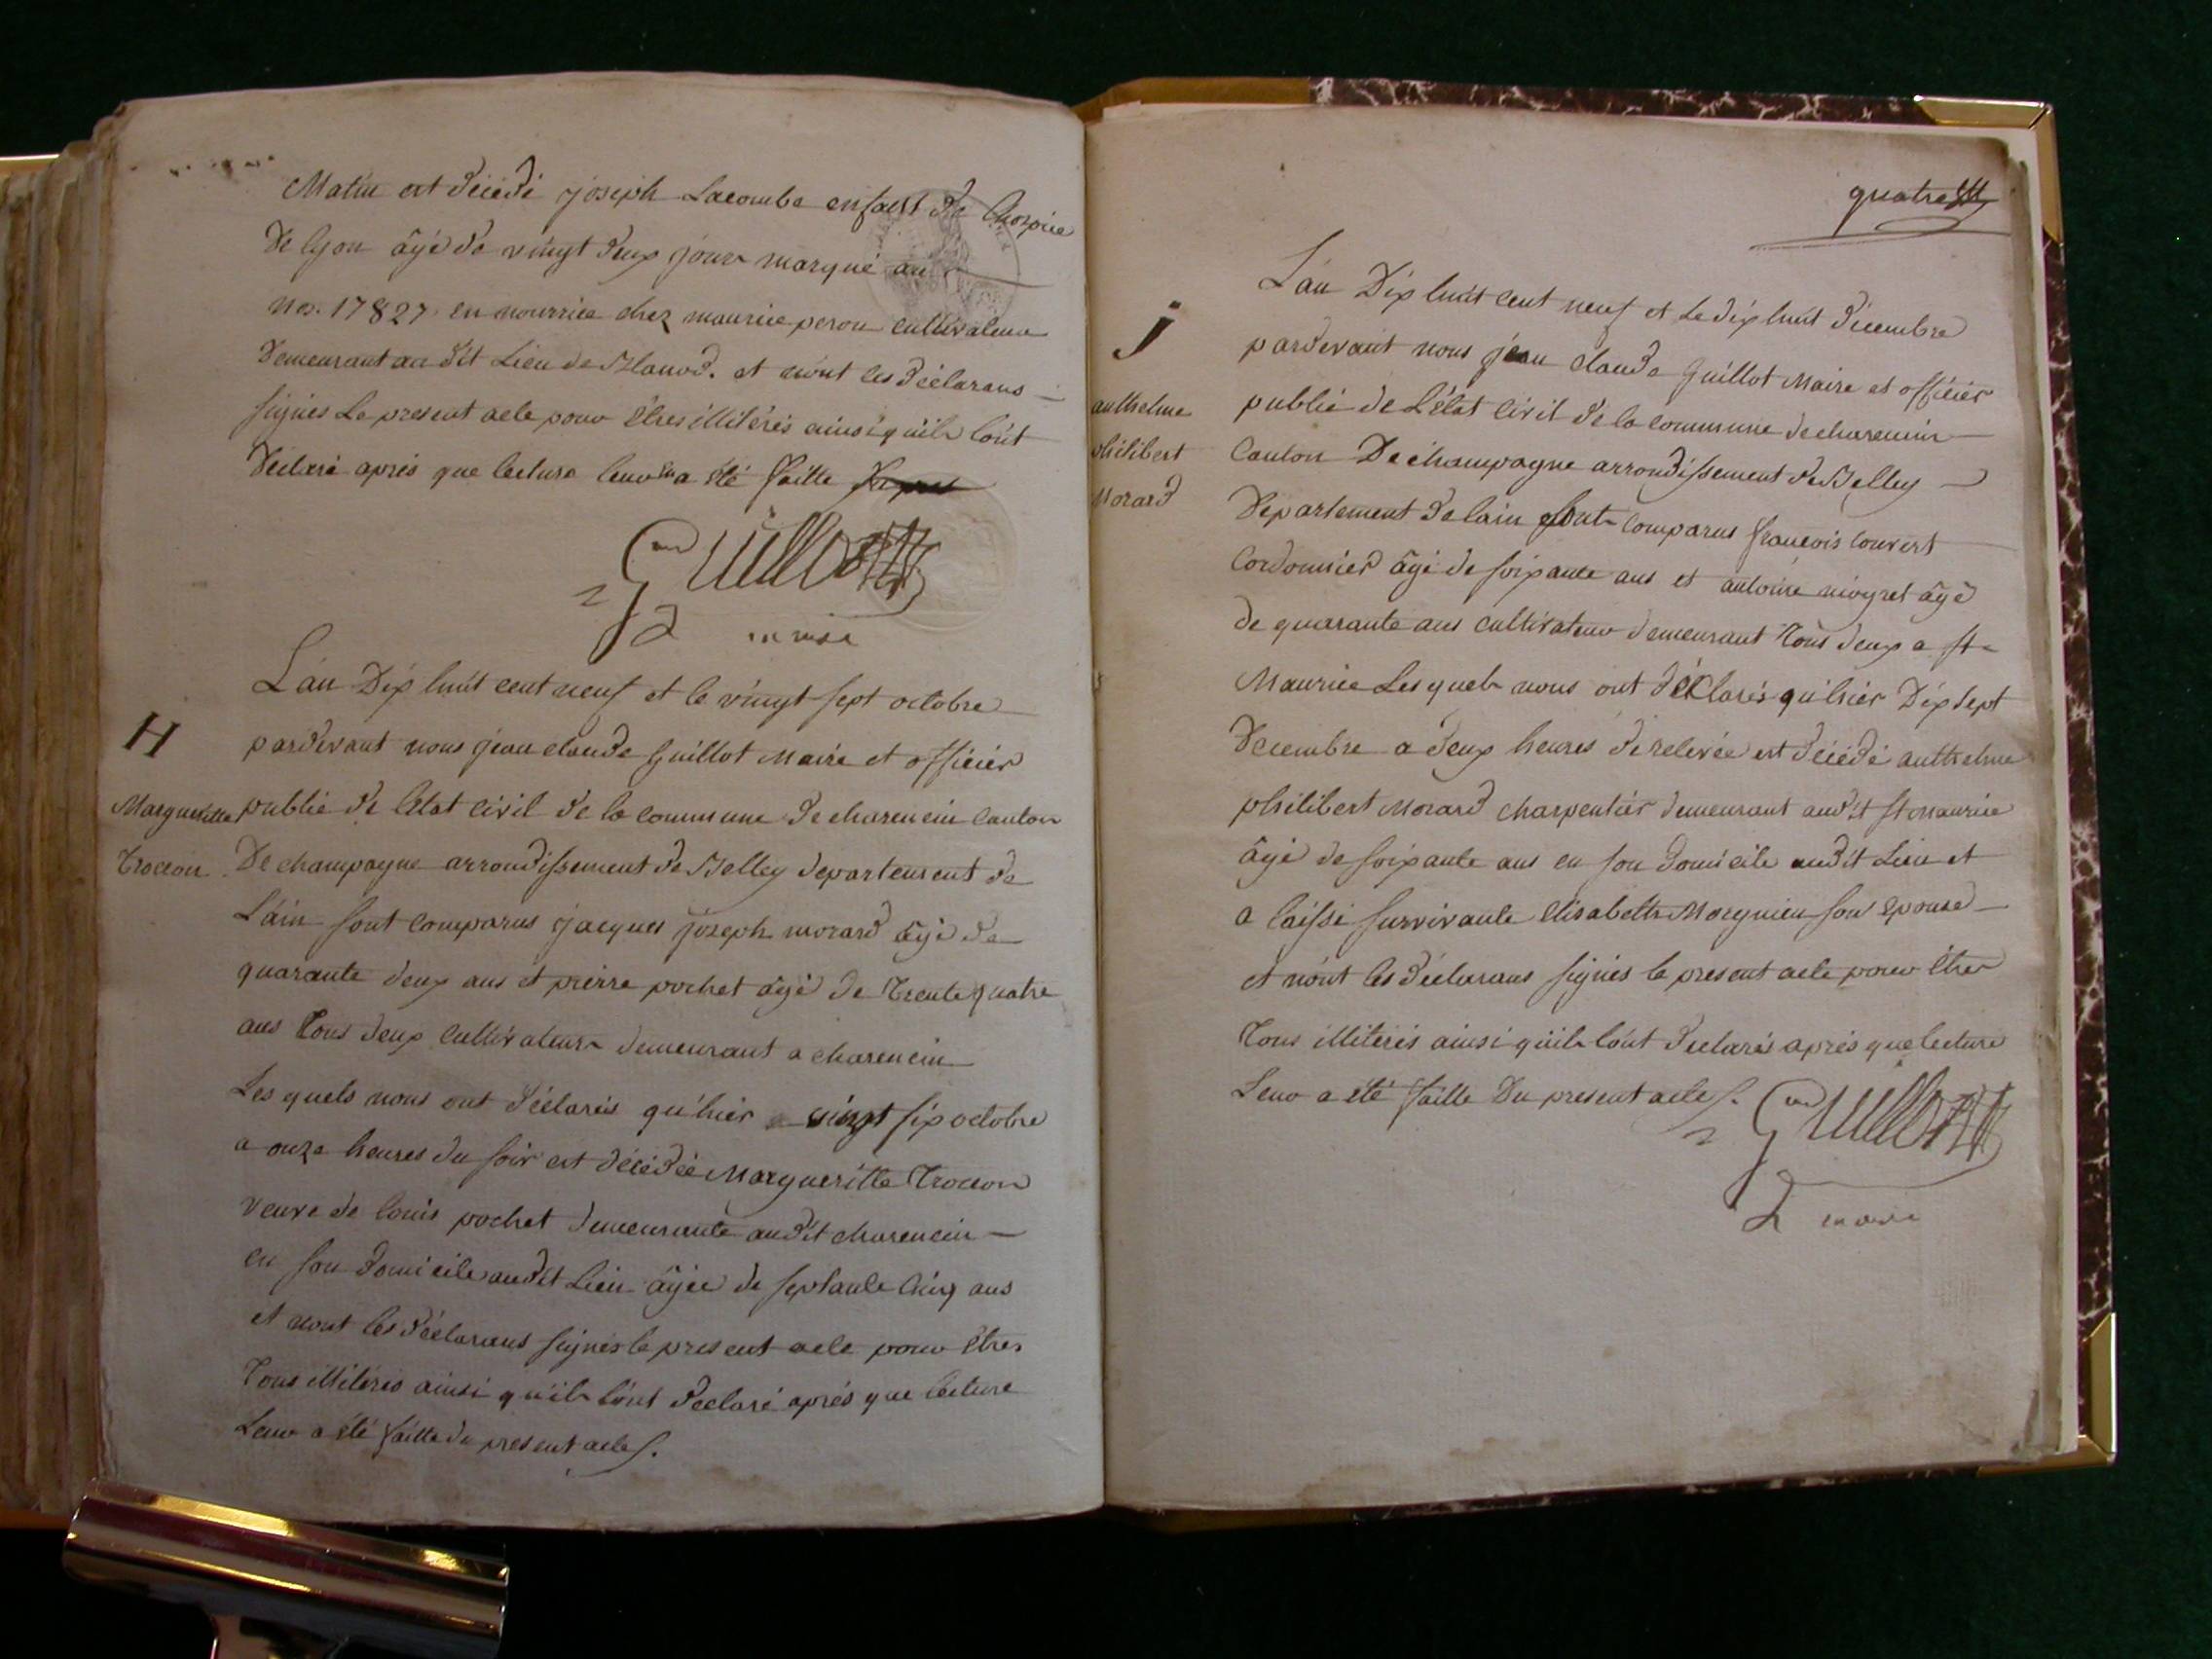 Matin est décédé joseph Lacombe enfant de lhospice
De lyon âgé de vingt deux jours marqué au
no. 17827 en nourrice chez maurice peron cultivateur
Demeurant au dit Lieu de Blanod. et n'ont les déclarans
signés Le present acte pour êtres illiterés ainsi qu'ils l'ont
Déclaré aprés que lecture leur en a été faitte
Guillot
maire
L'an Dix huit cent neuf et le vingt sept octobre
H
pardevant nous jean claude Guillot Maire et officier
Margueritte
public de l'etat civil de la commune de charencin Canton
Trocon
De champagne arrondissement de Belley departement de
L'ain sont comparus jacques joseph morard âgé de
quarante deux ans et pierre pochet âgé de trente quatre
ans Tous deux cultivateurs demeurant a charencin
Les quels nous ont déclarés qu'hier vingt six octobre
a onze heures du soir est décédée Margueritte Trocon
veuve de louis pochet demeurante audit charencin
en son domicile audit Lieu âgée de septante cinq ans
et n'ont les déclarans signés le present acte pour êtres
Tous illiterés ainsi qu'ils l'ont declaré aprés que lecture
Leur a été faitte du present acte.
quatre
L'an Dix huit cent neuf et le dix huit décembre
j
pardevant nous jean claude Guillot Maire et officier
anthelme
philibert
Morard
public de L'état civil de la commune de charencin
Canton De champagne arrondissement de Belley
Departement de lain sont comparus francois couvert
Cordonnier âgé de soixante ans et antoine niogret âgé
de quarante ans cultivateur demeurant Tous deux a st
Maurice Les quels nous ont déclarés qu'hier Dix sept
Decembre a deux heures de relevée est décédé anthelme
philibert Morard charpentier demeurant audit st Maurice
âgé de soixante ans en son domicile audit Lieu et
a laissé survivante elisabeth Morgnieu son epouse
et n'ont les déclarans signés le present acte pour êtres
Tous illiterés ainsi qu'ils l'ont declarés aprés que lecture
Leur a été faitte Du present acte.
Guillot
maire